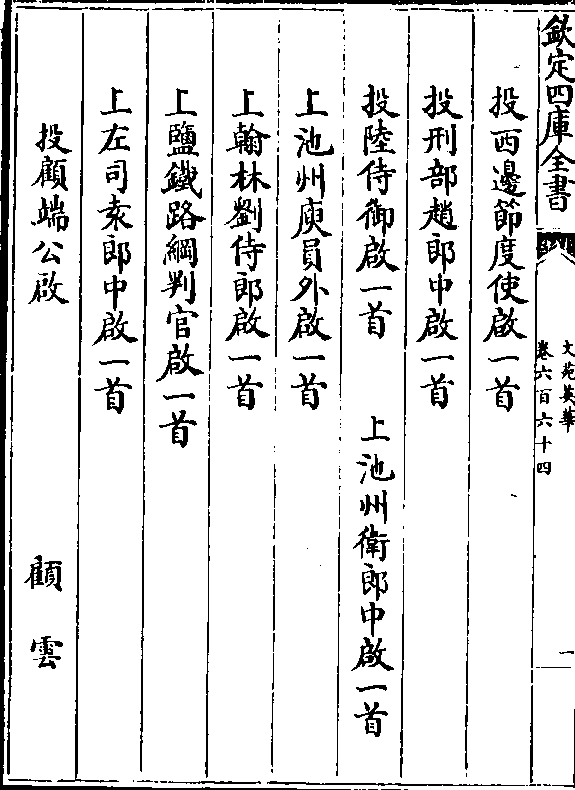 欽定四庫全書
文苑英華
卷六百六十四
一
投西邊節度使啟一首
投刑部趙郎中啟一首
投陸侍御啟一首　上池州衛郎中啟一首
上池州庾員外啟一首
上翰林劉侍郎啟一首
上鹽鐵路綱判官啟一首
上左司袁郎中啟一首
投顧端公啟　顧雲